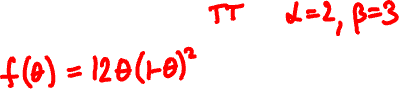 TT α=2, β=3
f(θ) = 12θ(1-θ)²